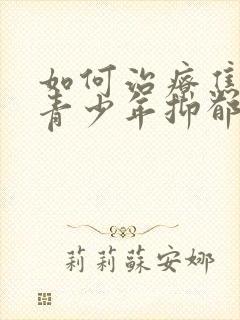 如何治療焦
青少年抑郁
莉莉蘇安娜